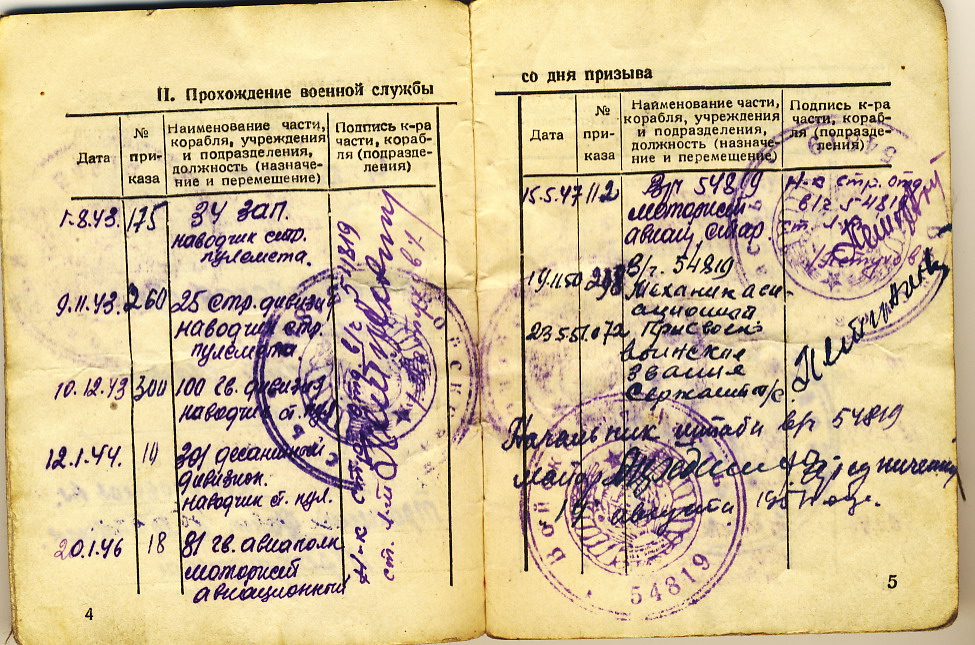 II. Прохождение военной службы
Дата
№ при-
каза
Наименование части,
корабля, учреждения
и подразделения,
должность (назначе-
ние и перемещение)
Подпись к-ра
части, кораб-
ля (подразде-
ления)
1.8.43. 175 34 зап.
наводчик стр.
пулемета.
9.11.43. 260 25 стр. дивизия
наводчик стр.
пулемета
10.12.43 300 100 гв. дивизия
наводчик ст. пул
12.1.44. 10 301 десантный
дивизион.
наводчик ст. пул.
20.1.46 18 81 гв. авиаполк
моторист
авиационный
Н-к стр. отд в/ч 54819
ст. л-т
4
со дня призыва
Дата
№
при-
каза
Наименование части,
корабля, учреждения
и подразделения,
должность (назначе-
ние и перемещение)
Подпись к-ра
части, кораб-
ля (подразде-
ления)
15.5.47 112 В/ч 54819
моторист
авиац. стар.
Н-к стр. отд
в/ч 54819
ст. л-т
19.11.50 298 В/ч. 54819
Механик ави-
ационный
23.5.51. 072 Присвоено
воинское
звание
Сержант т/с
Начальник штаба в/ч 54819
майор
августа 1951 года.
54819
5